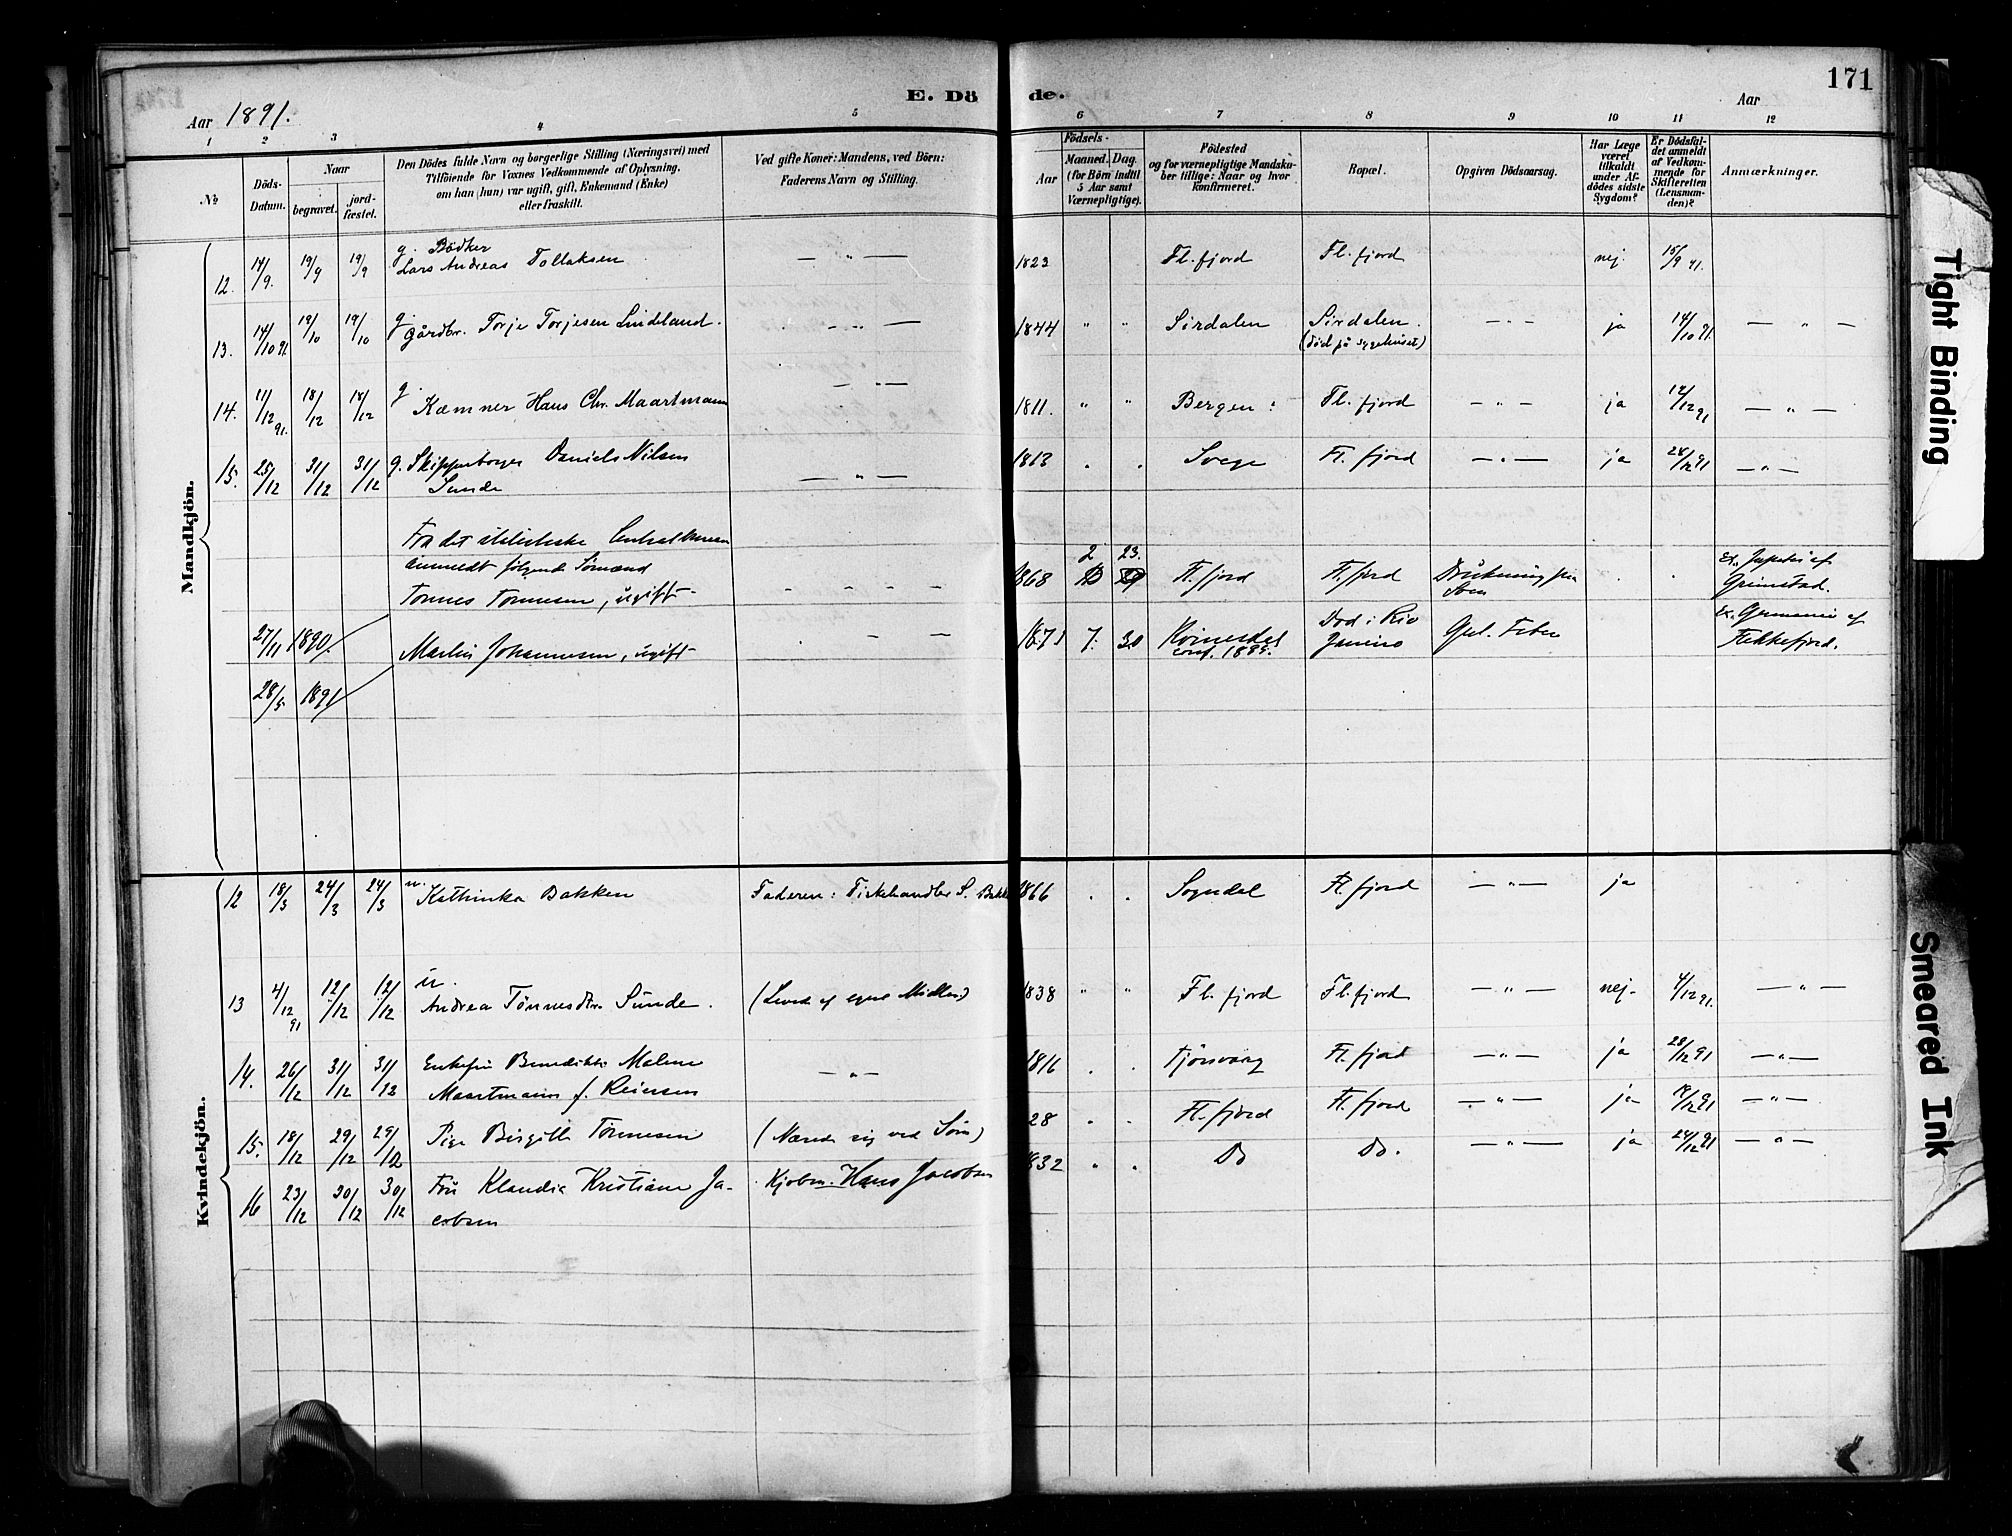 171
E. Dö de.
Aar 1891.
Aar
1 2 3 4 5 6 7 8 9 10 11 12
No
Döds-Datum.
Naar
begravet.
jord-fæstet.
Den Dödes fulde Navn og borgerlige Stilling (Næringsvei) med
Tilföiende for Voxnes Vedkommende af Oplysning,
om han (hun) var ugift, gift, Enkemand (Enke)
eller fraskilt.
Ved gifte Koner: Mandens, ved Börn:
Faderens Navn og Stilling.
Födsels-
Aar
Maaned. Dag.
(for Börn indtil
5 Aar samt
Værnepligtige).
Födested
og for værnepligtige Mandsku-
ber tillige: Naar og hvor
konfirmeret.
Bopæl.
Opgiven Dödsaarsag.
Har Læge
været
tilkaldt
under Af-
dödes sidste
Sygdom?
Er Dödsfal-
det anmeldt
af Vedkom-
mende for
Skifteretten
(Lensman-
den)?
Anmærkninger.
Mandkjön.
12. 14/9. 19/9 19/9 g. Bödker
Lars Andreas Tollaksen — „ — 1823 Fl.fjord Fl.fjord nej. 15/9 91.
13. 14/10 91. 19/10 19/10 g. Gårdbr. Torje Torjesen Lindeland. — „ — 1844 „ „ Sirdalen Sirdalen. — „ — ja 14/10 91. — „ —
(död på sygehuset)
14. 11/12 91. 18/12 18/12 g Kæmner Hans Chr. Maartmann — „ — 1811. „ „ Bergen: Fl.fjord — „ — ja 12/12 91 — „ —
15. 25/12 31/12 31/12 g. Skipperborger Daniels Nilsen
Sunde — „ — 1813 „ „ Svege Fl.fjord — „ — ja 28/12 91 — „ —
Fra det statistiske Centralbureau
anmeldt følgende Sømænd
Tønnes Tønnesen, ugift — 1868 2 23. Fl.fjord Fl.fjord Drukning fra
af
Grimstad.
27/11 1890. Martin Johannesen, ugift — 1871 7. 30 Kvinesdal
conf. 1885. Död i Rio
Janeiro Gul. Feber Ex. Germania af
Flekkefjord.
28/5 1891
Kvindekjön.
12 18/3 24/3 24/3 u. Kathinka Bakken Faderen: Fiskehandler S. Bakke 1866 „ „ Sogndal Fl.fjord — „ — ja
13 4/12 91 12/12 12/12 u.
Andrea Tönnesdtr. Sunde. (Leved af egne Midler) 1838 „ „ Fl.fjord Fl.fjord — „ — nej. 4/12 91. — „ —
14. 26/12 31/12 31/12 Enkefru Benedikte Malene
Maartmann f. Reiersen — „ — 1816 „ „ Tjørsvaag Fl.fjord — „ — ja 28/12 91 — „ —
15. 18/12 29/12 29/12 Pige Birgitte Tønnesen (Næred sig ved Søm) 28 „ „ Fl.fjord Fl.fjord — „ — ja 19/12 91 — „ —
16 23/12 30/12 30/12 Fru Klaudia Kristiane Ja-
cobsen Kjøbm. Hans Jacobsen 1832 „ „ Do Do. — „ — ja 24/12 91 — „ —
Tight Binding
Smeared Ink